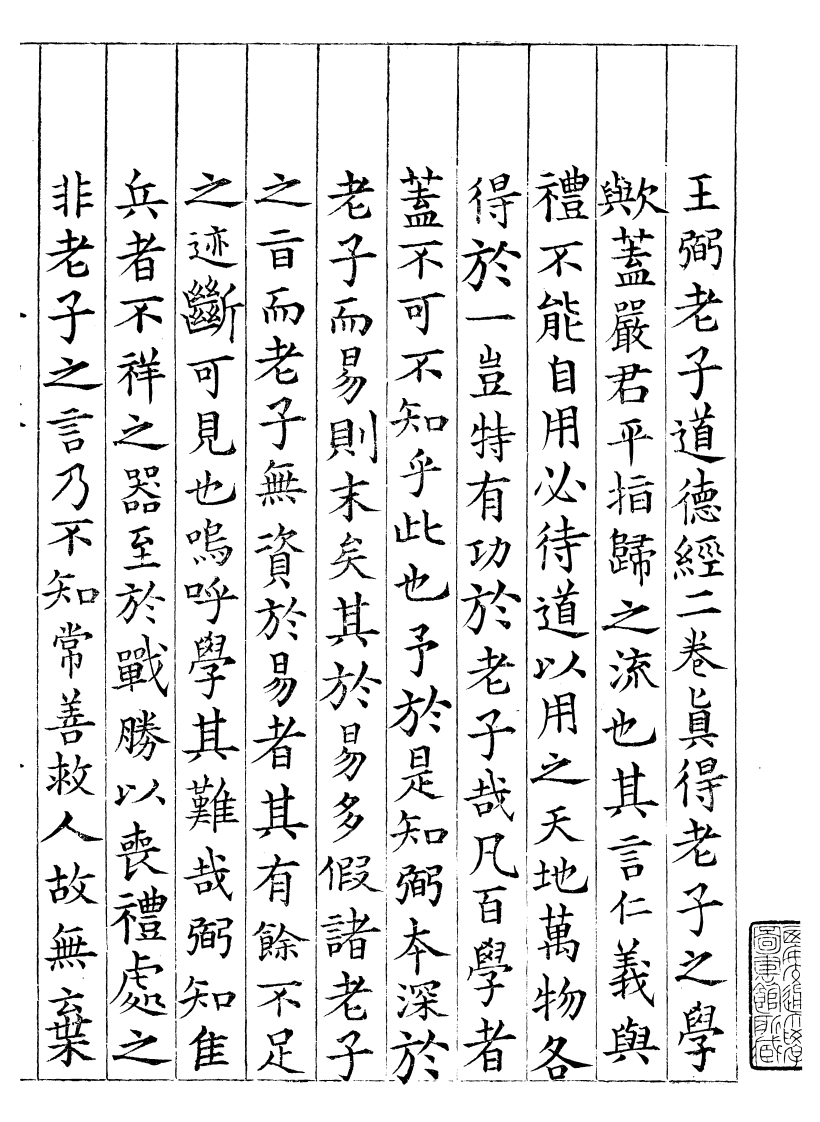 王弼老子道德經二卷眞得老子之學
歟蓋嚴君平指歸之流也其言仁義與
禮不能自用必待道以用之天地萬物各
得於一豈特有功於老子哉凡百學者
蓋不可不知乎此也予於是知弼本深於
老子而易則末矣其於易多假諸老子
之旨而老子無資於易者其有餘不足
之迹斷可見也嗚呼學其難哉弼知隹
兵者不祥之器至於戰勝以喪禮處之
非老子之言乃不知常善救人故無棄
圖書館所藏